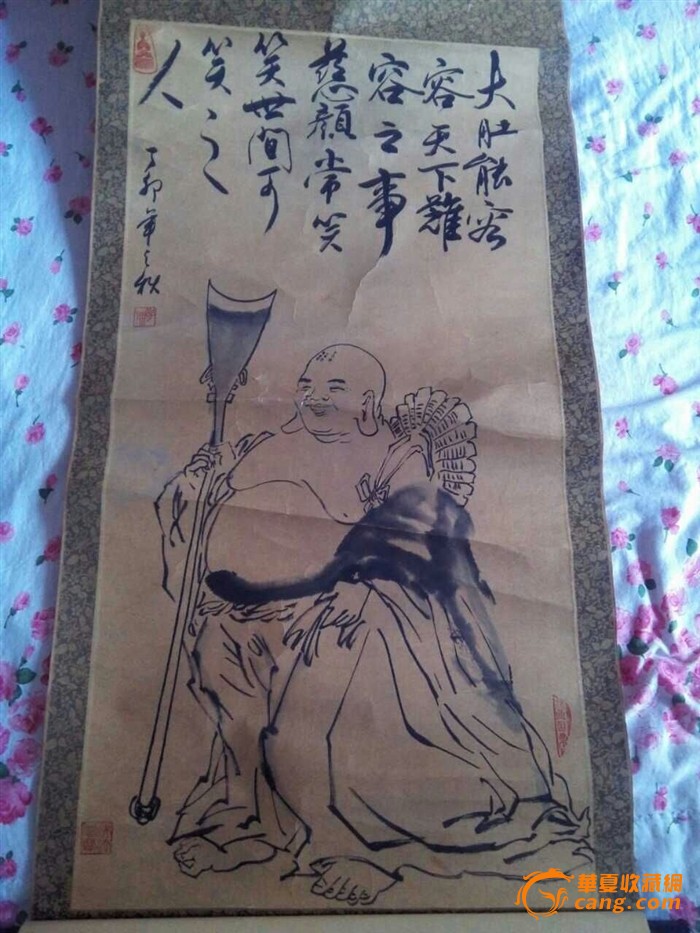 大肚能容
容天下難
容之事
慈顏常笑
笑世間可
笑之
人
丁卯年之秋
華夏收藏網
cang.com